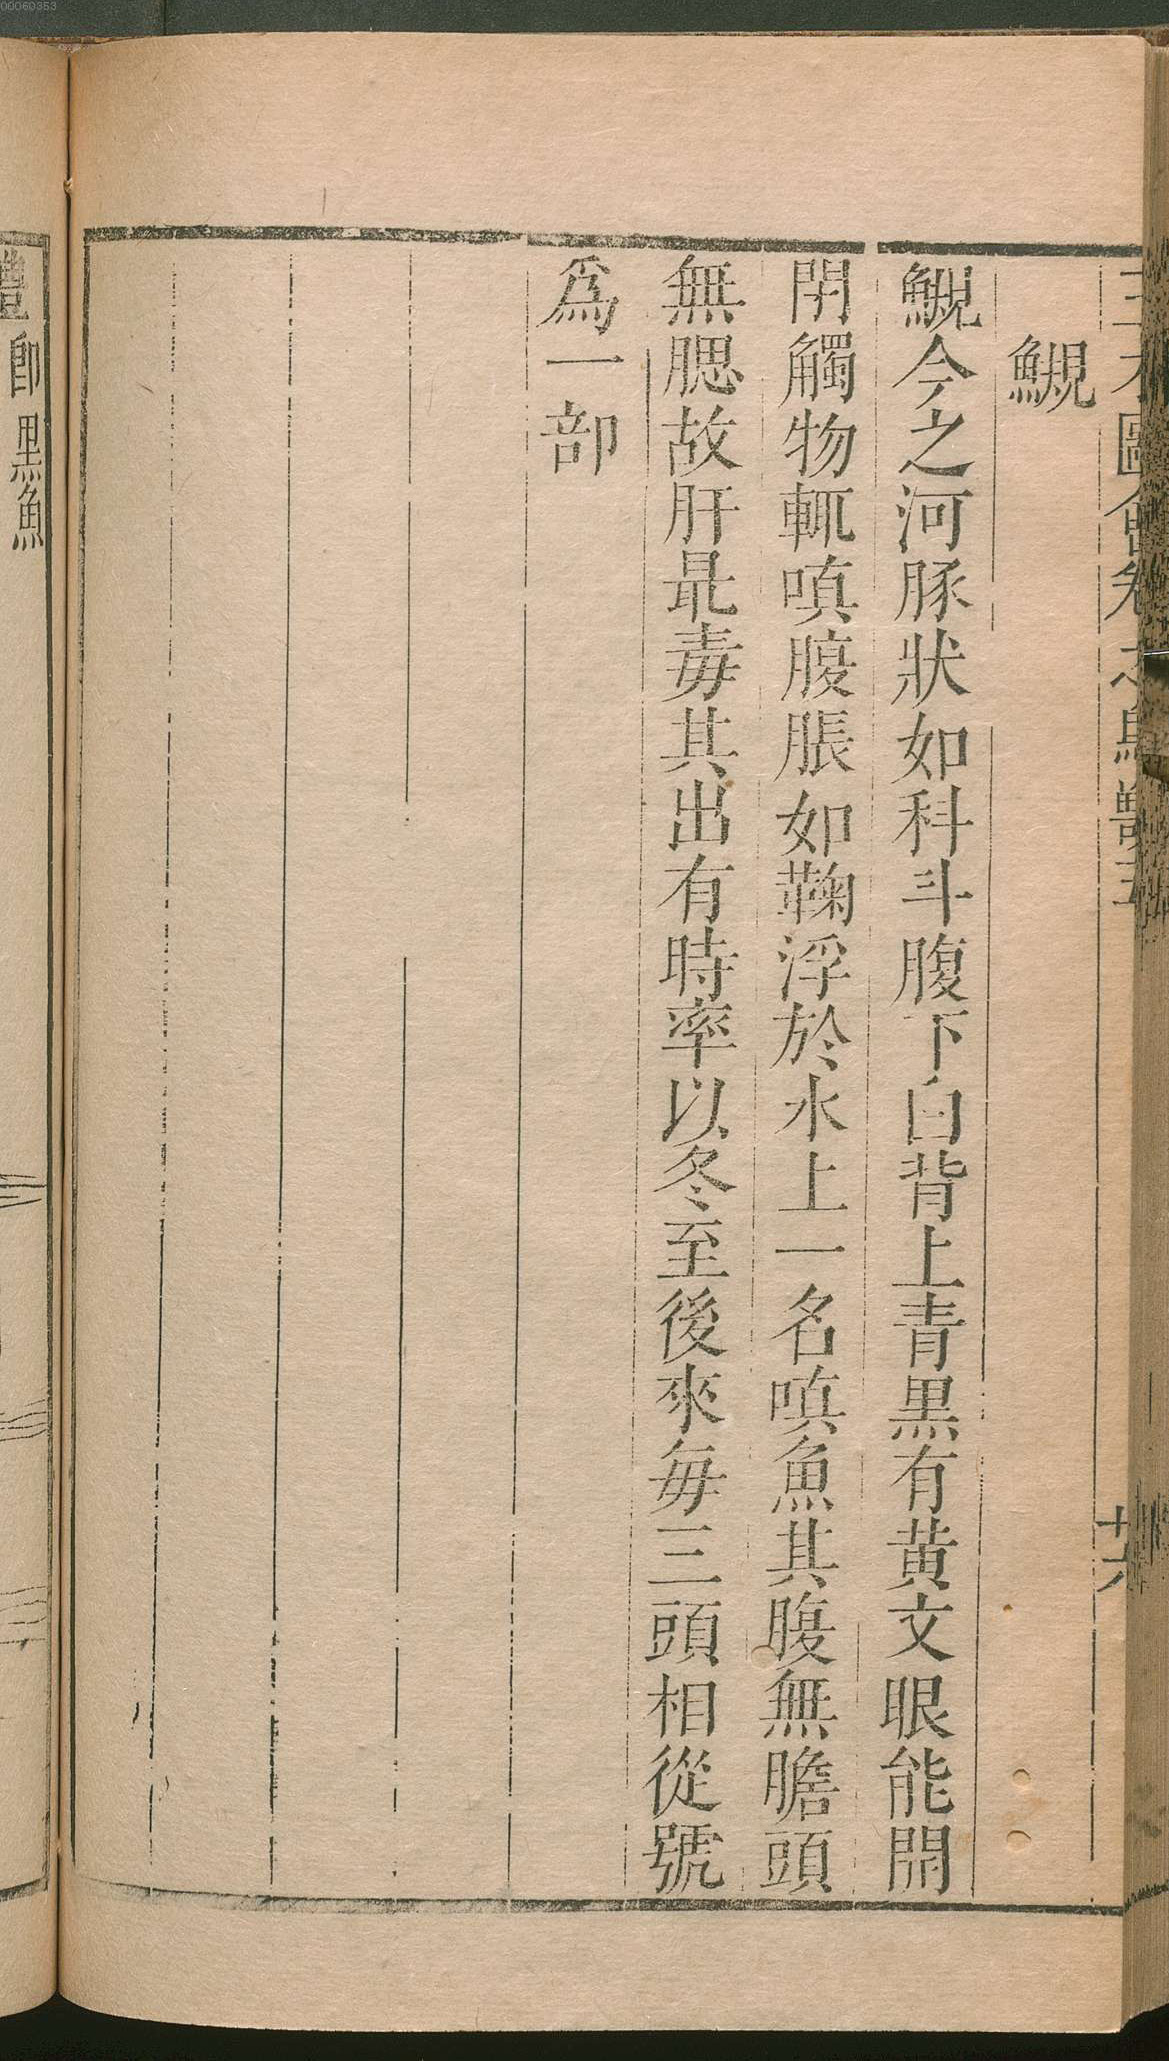 00060353
三才圖會卷之鳥獸五
十六
鯢
鯢今之河豚狀如科斗腹下白背上青黑有黄文眼能開
閉觸物輒嗔腹脹如鞠浮於水上一名嗔魚其腹無膽頭
無腮故肝最毒其出有時率以冬至後來每三頭相從號
爲一部
鱧即黑魚